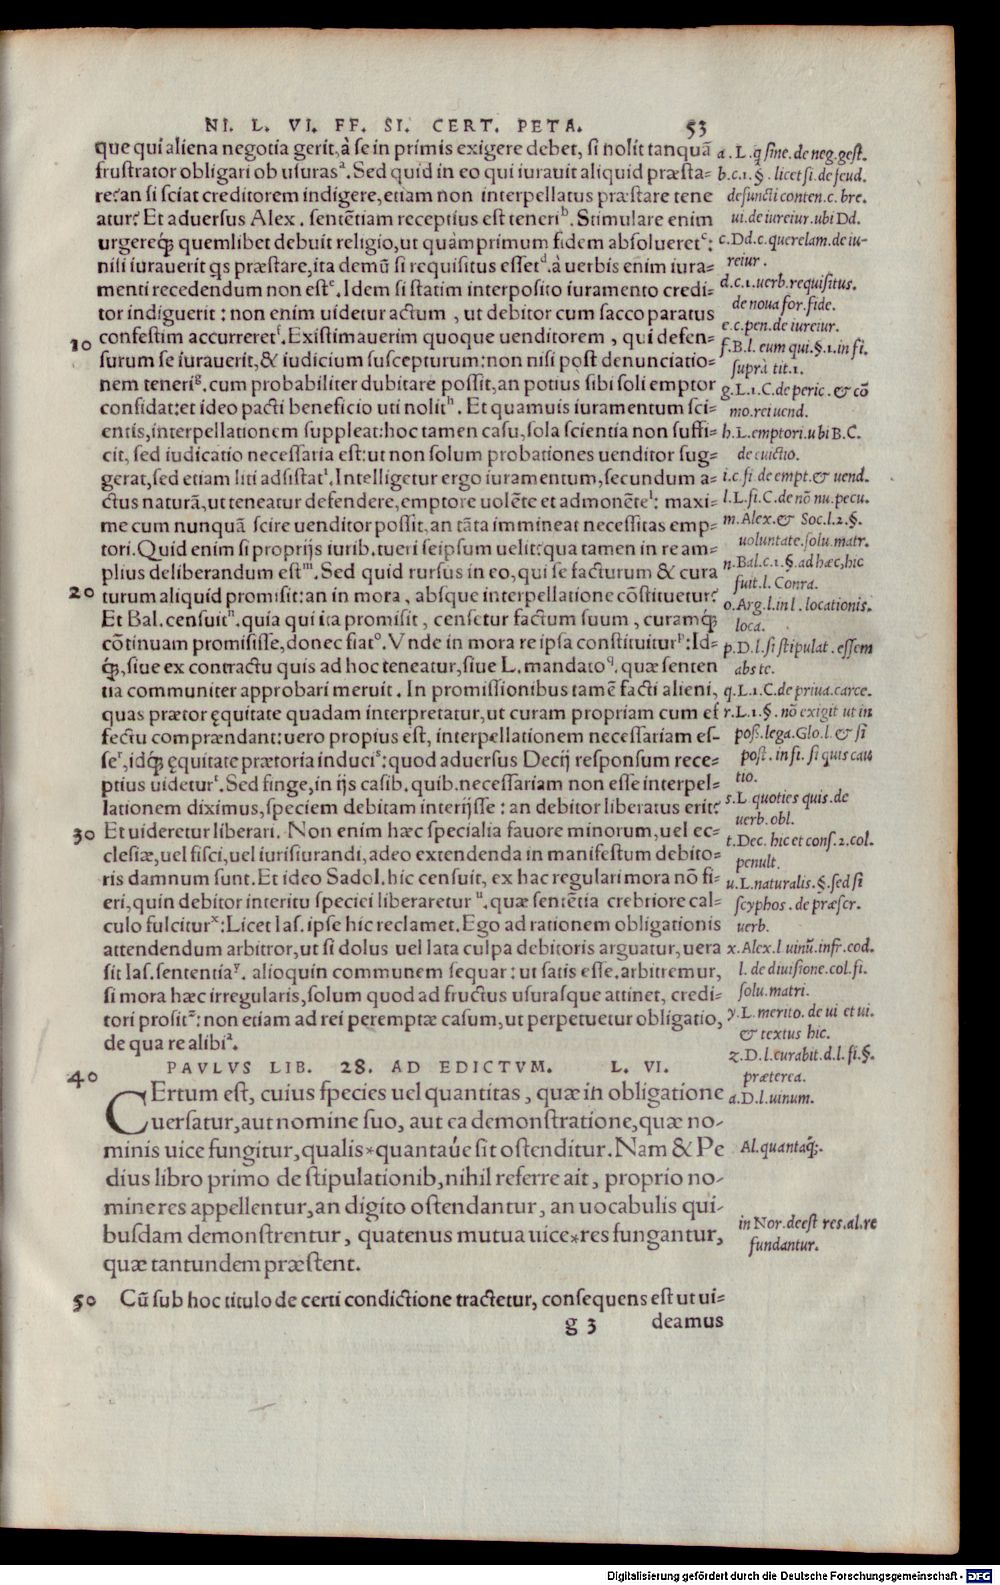 NI. L. VI. FF. SI. CERT. PETA. 53
que qui aliena negotia gerit, à se in primis exigere debet, si nolit tanquã
frustrator obligari ob usurasᵃ. Sed quid in eo qui iurauit aliquid præsta=
re? an si sciat creditorem indigere, etiam non interpellatus præstare tene
atur? Et aduersus Alex. sentẽtiam receptius est teneriᵇ. Stimulare enim
urgereq́; quemlibet debuit religio, ut quàmprimum fidem absolueretᶜ:
nisi iurauerit qs præstare, ita demũ si requisitus essetᵈ. à uerbis enim iura=
menti recedendum non estᵉ. Idem si statim interposito iuramento credi=
tor indiguerit: non enim uidetur actum, ut debitor cum sacco paratus
confestim accurreretᶠ. Existimauerim quoque uenditorem, qui defen=
10
surum se iurauerit, & iudicium suscepturum: non nisi post denunciatio=
nem teneriᵍ. cum probabiliter dubitare possit, an potius sibi soli emptor
confidat: et ideo pacti beneficio uti nolitʰ. Et quamuis iuramentum sci=
entis, interpellationem suppleat: hoc tamen casu, sola scientia non suffi=
cit, sed iudicatio necessaria est: ut non solum probationes uenditor sug=
gerat, sed etiam liti adsistatⁱ. Intelligetur ergo iuramentum, secundum a=
ctus naturã, ut teneatur defendere, emptore uolẽte et admonẽteˡ: maxi=
me cum nunquã scire uenditor possit, an tãta immineat necessitas emp=
tori. Quid enim si proprijs iurib. tueri seipsum uelit: qua tamen in re am=
plius deliberandum estᵐ. Sed quid rursus in eo, qui se facturum & cura
20 turum aliquid promisit: an in mora, absque interpellatione cõstituetur?
Et Bal. censuitⁿ. quia qui ita promisit, censetur factum suum, curamq́;
cõtinuam promisisse, donec fiatᵒ. Vnde in mora re ipsa constituiturᵖ: Id=
q́;, siue ex contractu quis ad hoc teneatur, siue L. mandato^q. quæ senten
tia communiter approbari meruit. In promissionibus tamẽ facti alieni,
quas prætor ęquitate quadam interpretatur, ut curam propriam cum ef
fectu comprændant: uero propius est, interpellationem necessariam es-
seʳ, idq́; ęquitate prætoria induciˢ: quod aduersus Decij responsum rece=
ptius uideturᵗ. Sed finge, in ijs casib. quib. necessariam non esse interpel=
lationem diximus, speciem debitam interijsse: an debitor liberatus erit?
30 Et uideretur liberari. Non enim hæc specialia fauore minorum, uel ec=
clesiæ, uel fisci, uel iurisiurandi, adeo extendenda in manifestum debito=
ris damnum sunt. Et ideo Sadol. hic censuit, ex hac regulari mora nõ fi=
eri, quin debitor interitu speciei liberareturᵘ. quæ sentẽtia crebriore cal=
culo fulciturˣ: Licet Ias. ipse hic reclamet. Ego ad rationem obligationis
attendendum arbitror, ut si dolus uel lata culpa debitoris arguatur, uera
sit Ias. sententiaʸ. alioquin communem sequar: ut satis esse arbitremur,
si mora hæc irregularis, solum quod ad fructus usurasque attinet, credi=
tori prositᶻ: non etiam ad rei peremptæ casum, ut perpetuetur obligatio,
de qua re alibiᵃ.
40 PAVLVS LIB. 28. AD EDICTVM. L. VI.
CErtum est, cuius species uel quantitas, quæ in obligatione
uersatur, aut nomine suo, aut ea demonstratione, quæ no-
minis uice fungitur, qualis*quantaúe sit ostenditur. Nam & Pe
dius libro primo de stipulationib, nihil referre ait, proprio no-
mine res appellentur, an digito ostendantur, an uocabulis qui-
busdam demonstrentur, quatenus mutua uice*res fungantur,
quæ tantundem præstent.
50 Cũ sub hoc titulo de certi condictione tractetur, consequens est ut ui=
g 3 deamus
a. L. q sine. de neg. gest.
b. c. 1. §. licet si. de feud.
defuncti conten. c. bre.
ui. de iureiur. ubi Dd.
c. Dd. c. querelam. de iu-
reiur.
d. c. 1. uerb. requisitus.
de noua for. fide.
e. c. pen. de iureiur.
f. B. l. eum qui. §. 1. in fi.
suprà tit. 1.
g. L. 1. C. de peric. & cõ
mo. rei uend.
h. L. emptori. ubi B. C.
de euictio.
i. c. fi. de empt. & uend.
l. L. fi. C. de nõ nu. pecu.
m. Alex. & Soc. l. 2. §.
uoluntate. solu. matr.
n. Bal. c. 1. §. ad hæc, hic
fuit. l. Conra.
o. Arg. l. in l. locationis.
loca.
p. D. l. si stipulat. essem
abs te.
q. L. 1. C. de priua. carce.
r. L. 1. §. nõ exigit ut in
poss. lega. Glo. l. & si
post. in fi. si quis cau
tio.
s. L quoties quis. de
uerb. obl.
t. Dec. hic et cons. 2. col.
penult.
u. L. naturalis. §. sed si
scyphos. de præscr.
uerb.
x. Alex. l uinũ. infr. eod.
l. de diuisione. col. fi.
solu. matri.
y. L. merito. de ui et ui.
& textus hic.
z. D. l. curabit. d. l. fi. §.
præterea.
a. D. l. uinum.
Al. quantaq́;.
in Nor. deest res. al. re
fundantur.
Digitalisierung gefördert durch die Deutsche Forschungsgemeinschaft - DFG